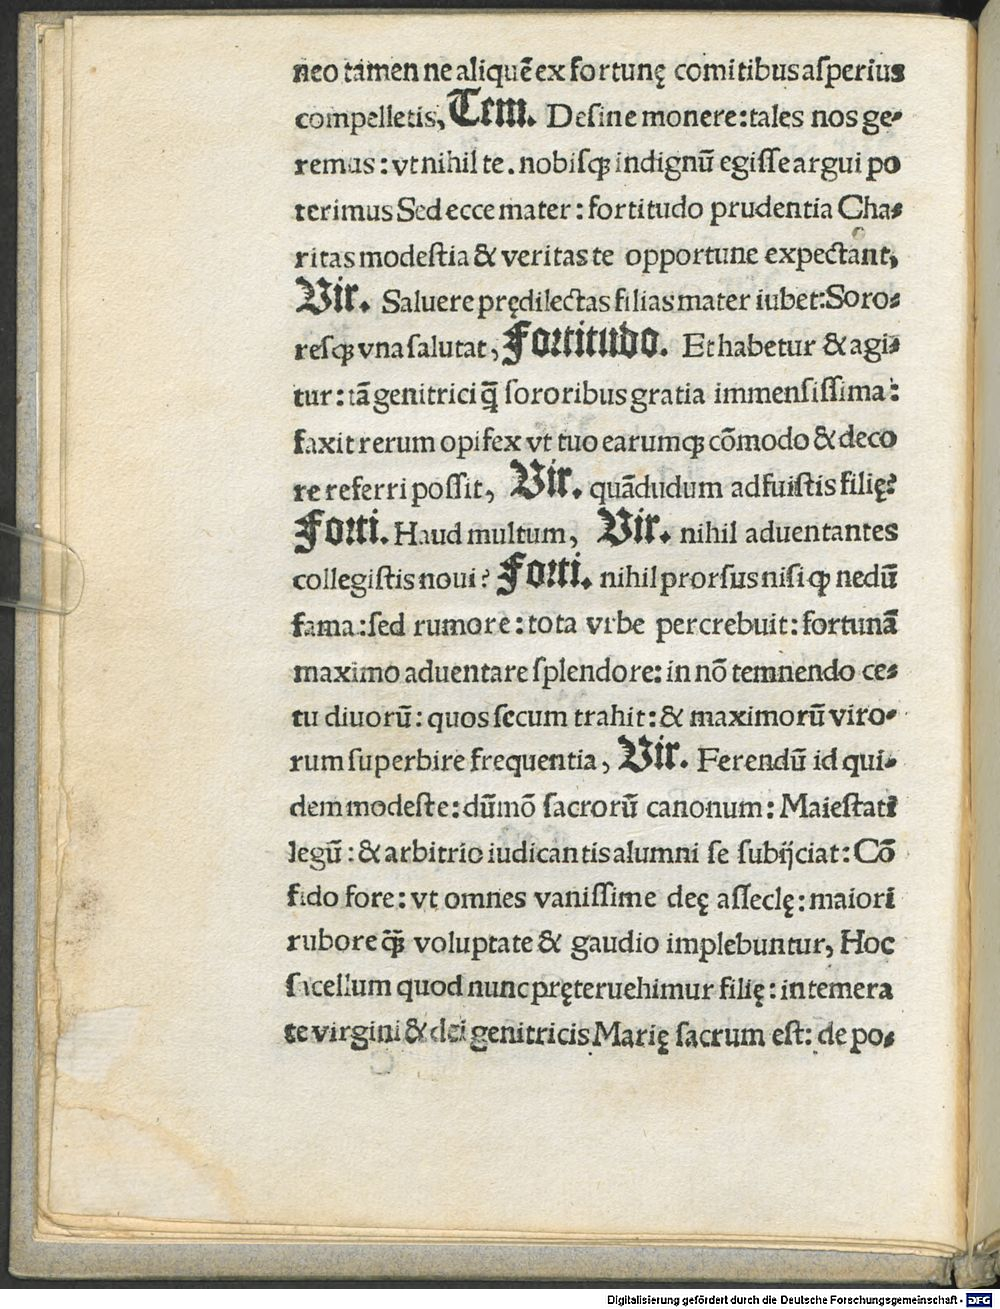 neo tamen ne aliquẽ ex fortunę comitibus aſperius
compelletis, Tem. Deſine monere: tales nos ge⸗
remus: vt nihil te. nobiſqꝫ indignũ egiſſe argui po
terimus Sed ecce mater: fortitudo prudentia Cha⸗
ritas modeſtia & veritas te opportune expectant,
Vir. Saluere prędilectas filias mater iubet: Soro⸗
reſqꝫ vna ſalutat, Fortitudo. Et habetur & agi⸗
tur: tã genitrici q̃ ſororibus gratia immenſiſſima:
faxit rerum opifex vt tuo earumqꝫ cõmodo & deco
re referri poſſit, Vir. quãdudum adfuiſtis filię?
Forti. Haud multum, Vir. nihil aduentantes
collegiſtis noui? Forti. nihil prorſus niſi ꝙ nedũ
fama: ſed rumore: tota vrbe percrebuit: fortunã
maximo aduentare ſplendore: in nõ temnendo ce⸗
tu diuorũ: quos ſecum trahit: & maximorũ viro⸗
rum ſuperbire frequentia, Vir. Ferendũ id qui⸗
dem modeſte: dũmõ ſacrorũ canonum: Maieſtati
legũ: & arbitrio iudicantis alumni ſe ſubijciat: Cõ
fido fore: vt omnes vaniſſime deę aſſeclę: maiori
rubore q̃ꝫ voluptate & gaudio implebuntur, Hoc
ſacellum quod nunc pręteruehimur filię: intemera
te virgini & dei genitricis Marię ſacrum eſt: de po⸗
Digitalisierung gefördert durch die Deutsche Forschungsgemeinschaft - DFG